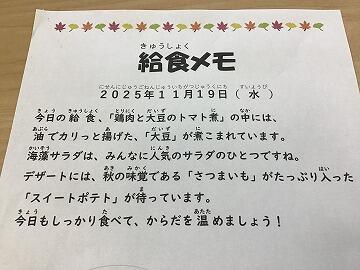 給食メモ
2025年11月19日(水)
今日の給食、「鶏肉と大豆のトマト煮」の中には、
油でカリっと揚げた、「大豆」が煮こまれています。
海藻サラダは、みんなに人気のサラダのひとつですね。
デザートには、秋の味覚である「さつまいも」がたっぷり入った
「スイートポテト」が待っています。
今日もしっかり食べて、からだを温めましょう!